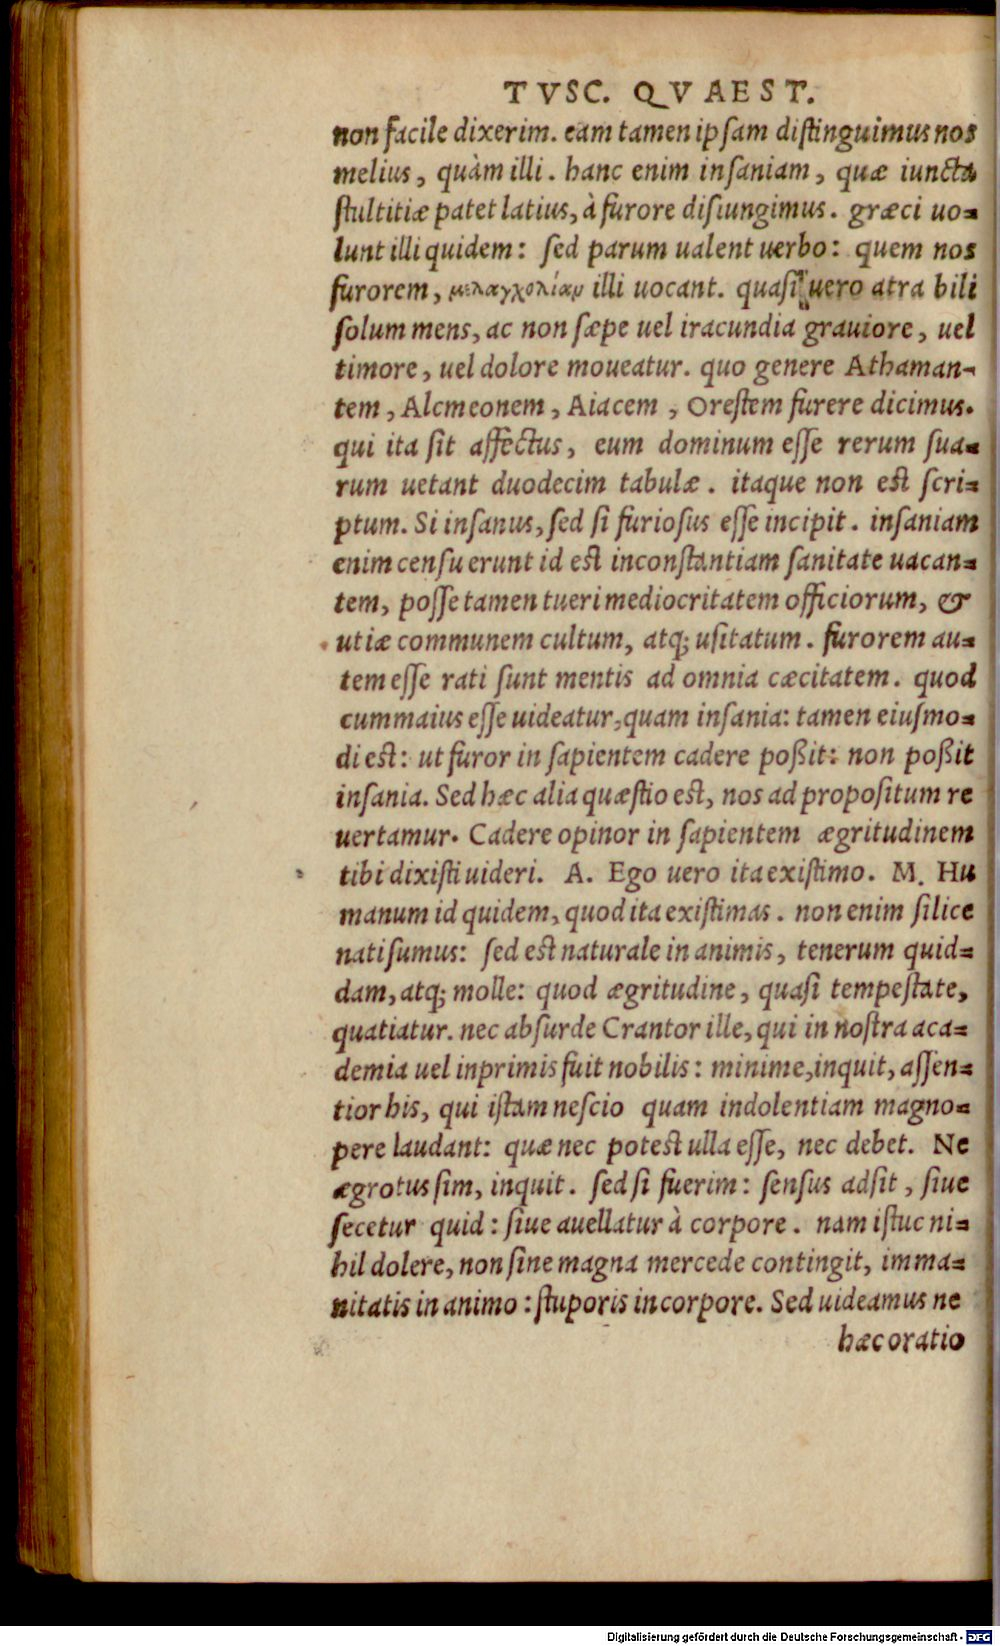 TVSC. QVAEST.
non facile dixerim. eam tamen ipſam diſtinguimus nos
melius, quàm illi. hanc enim inſaniam, quæ iuncta
ſtultitiæ patet latius, à furore diſiungimus. græci uo-
lunt illi quidem: ſed parum ualent uerbo: quem nos
furorem, μελαγχολίαν illi uocant. quaſi uero atra bili
ſolum mens, ac non ſæpe uel iracundia grauiore, uel
timore, uel dolore moueatur. quo genere Athaman-
tem, Alcmeonem, Aiacem, Oreſtem furere dicimus.
qui ita ſit affectus, eum dominum eſſe rerum ſua-
rum uetant duodecim tabulæ. itaque non eſt ſcri-
ptum. Si inſanus, ſed ſi furioſus eſſe incipit. inſaniam
enim cenſuerunt id eſt inconſtantiam ſanitate uacan-
tem, poſſe tamen tueri mediocritatem officiorum, &
utiæ communem cultum, atq; uſitatum. furorem au-
tem eſſe rati ſunt mentis ad omnia cæcitatem. quod
cum maius eſſe uideatur, quam inſania: tamen eiuſmo-
di eſt: ut furor in ſapientem cadere poßit: non poßit
inſania. Sed hæc alia quæſtio eſt, nos ad propoſitum re
uertamur. Cadere opinor in ſapientem ægritudinem
tibi dixiſti uideri. A. Ego uero ita exiſtimo. M. Hu
manum id quidem, quod ita exiſtimas. non enim ſilice
nati ſumus: ſed eſt naturale in animis, tenerum quid-
dam, atq; molle: quod ægritudine, quaſi tempeſtate,
quatiatur. nec abſurde Crantor ille, qui in noſtra aca-
demia uel inprimis fuit nobilis: minime, inquit, aſſen-
tior his, qui iſtam neſcio quam indolentiam magno-
pere laudant: quæ nec poteſt ulla eſſe, nec debet. Ne
ægrotus ſim, inquit. ſed ſi fuerim: ſenſus adſit, ſiue
ſecetur quid: ſiue auellatur à corpore. nam iſtuc ni-
hil dolere, non ſine magna mercede contingit, imma-
nitatis in animo: ſtuporis in corpore. Sed uideamus ne
hæc oratio
Digitalisierung gefördert durch die Deutsche Forschungsgemeinschaft - DFG